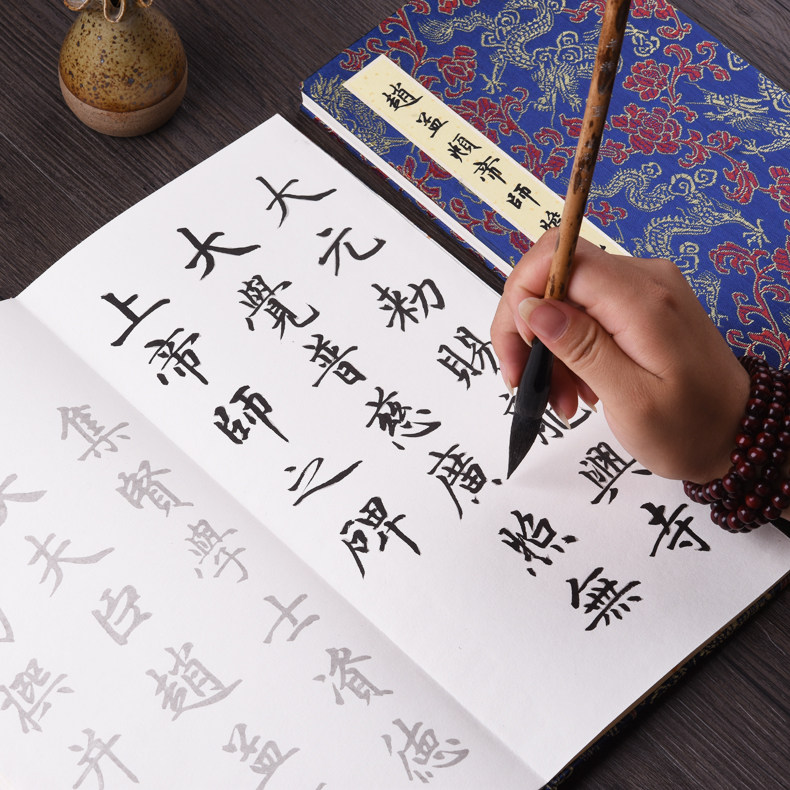 趙孟頫帝師膽
大元勅賜龍興寺
大覺普慈廣照無
上帝師之碑
集賢學士資德
大夫臣趙孟
撰并